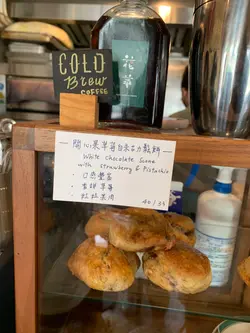 COLD
Brew
COFFEE
花草
開心果草莓白朱古力鬆餅
White chocolate Scone
with strawberry & Pistachio
· 日式雙立
· 香甜草莓
· 粒粒果肉